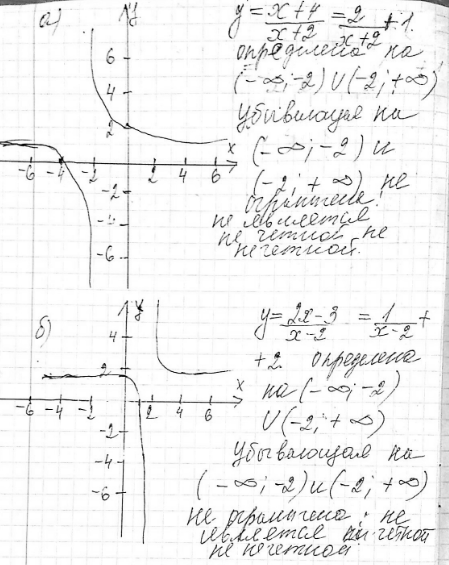 а)
y = x+4/x+2 = 2/x+2 + 1.
определена на
(-∞; -2) U (-2; +∞)
убывающая на
(-∞; -2) и
(-2; +∞) не
ограничена.
не является
не четной не
нечетной.
y
6
4
2
x
-6 -4 -2 2 4 6
-2
-4
-6
б)
y = 2x-3/x-2 = 1/x-2 +
+2 определена
на (-∞; -2)
U (-2; +∞)
убывающая на
(-∞; -2) и (-2; +∞)
не ограничена; не
является ни четной
не нечетной
y
4
2
x
-6 -4 -2 2 4 6
-2
-4
-6